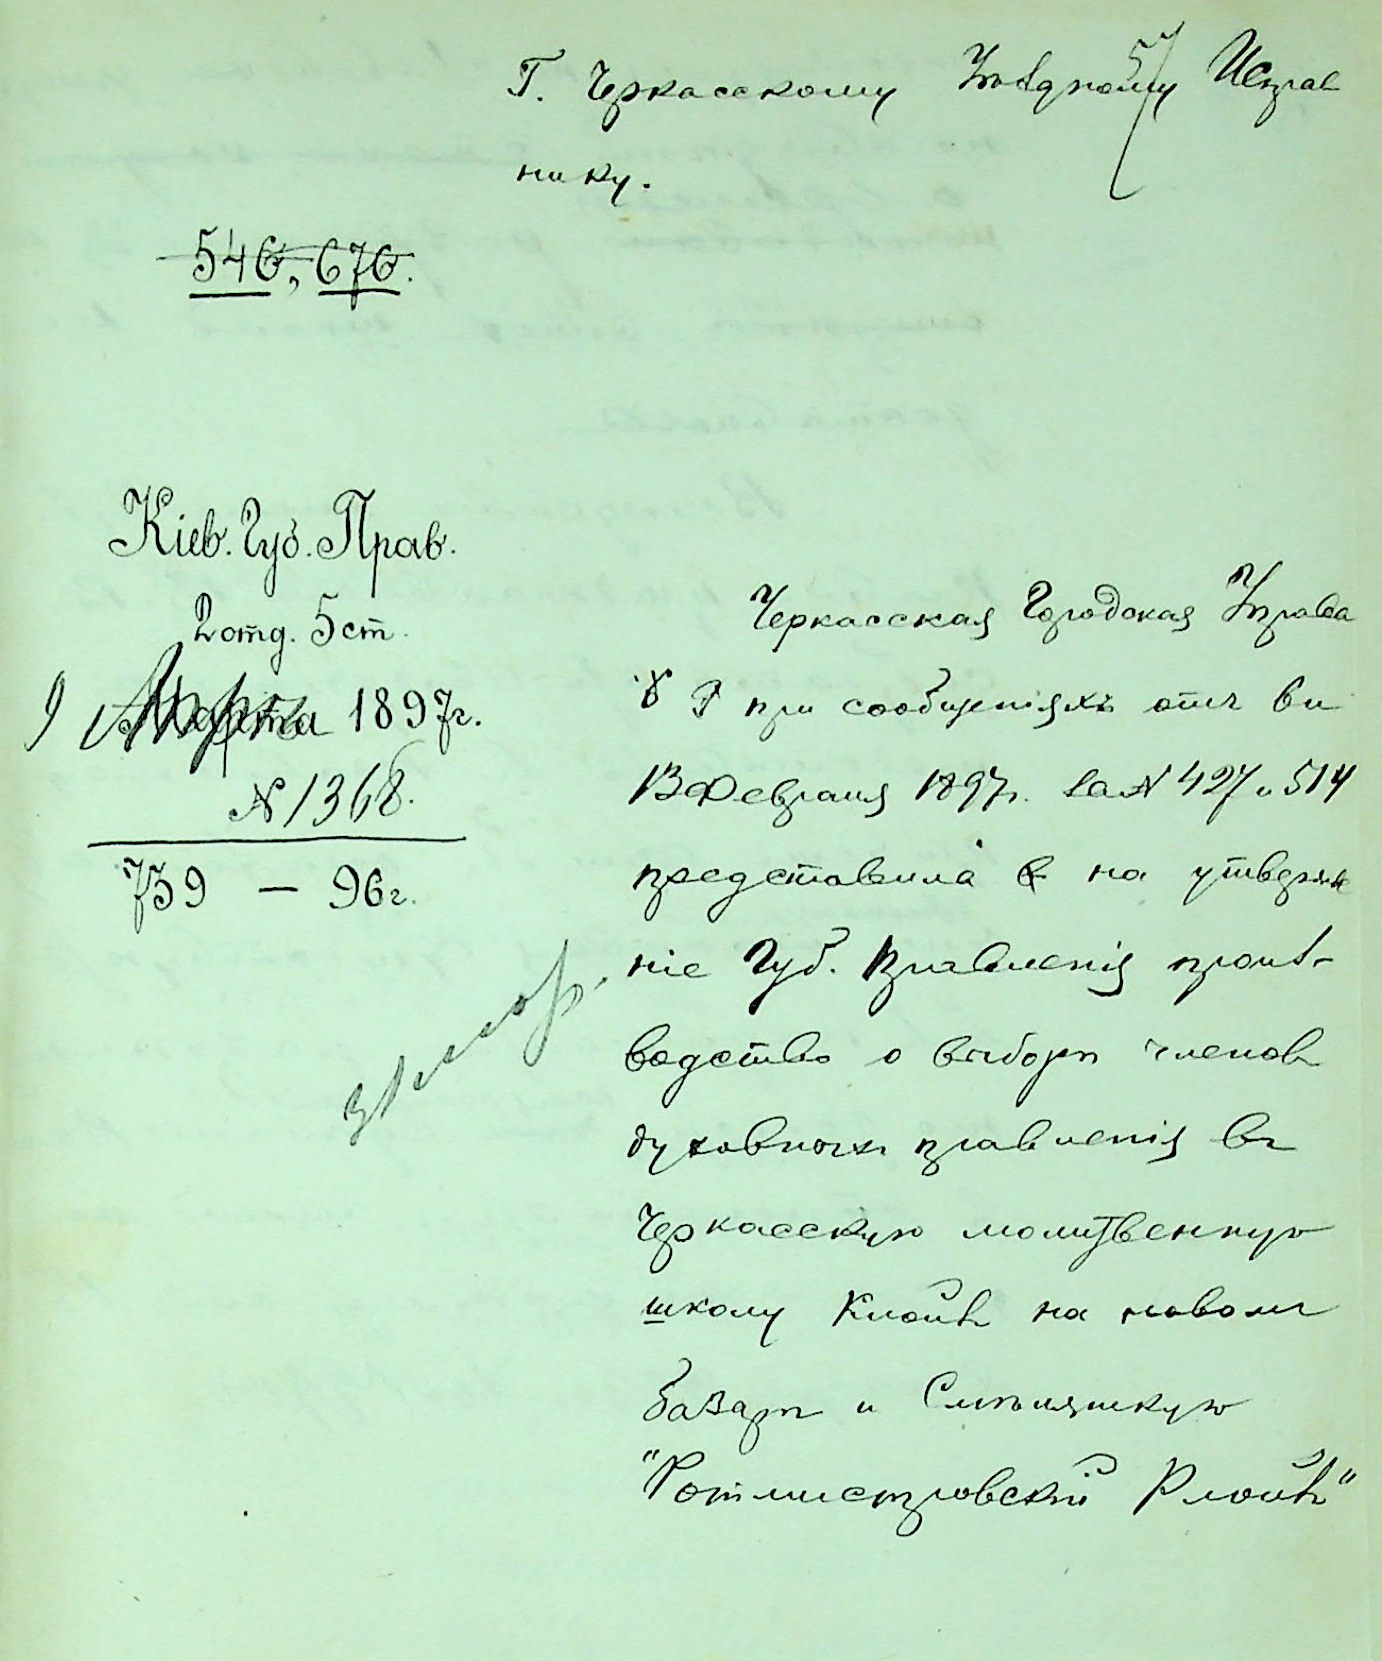 57
Г. Черкасскому Уѣздному Исправ
нику.
546, 670.
Кіев. Губ. Прав.
2 отд. 5 ст.
9 Марта 1897 г.
№ 1368.
739 — 96 г.
Черкасская Городская Управа
при сообщеніяхъ отъ
13 Февраля 1897 г. за № 427 и 514
представила на утвержде
ніе Губ. Правленія произ-
водство о выборѣ членовъ
духовныхъ правленія въ
Черкасскую молитвенную
школу Клойзъ на новомъ
базарѣ и Смѣлянскую
"Ротмистровскій Клойзъ"